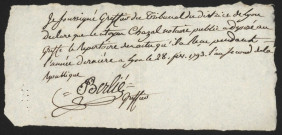 Je soussigné Greffier du Tribunal du district de Lyon
declare que le citoyen Chazal notaire public a déposé au
Greffe le Repertoire des actes qu'il a Reçu pendant
l'année dernière a Lyon le 28. fev. 1793. l'an second de la
Republique
Berlié
Greffier